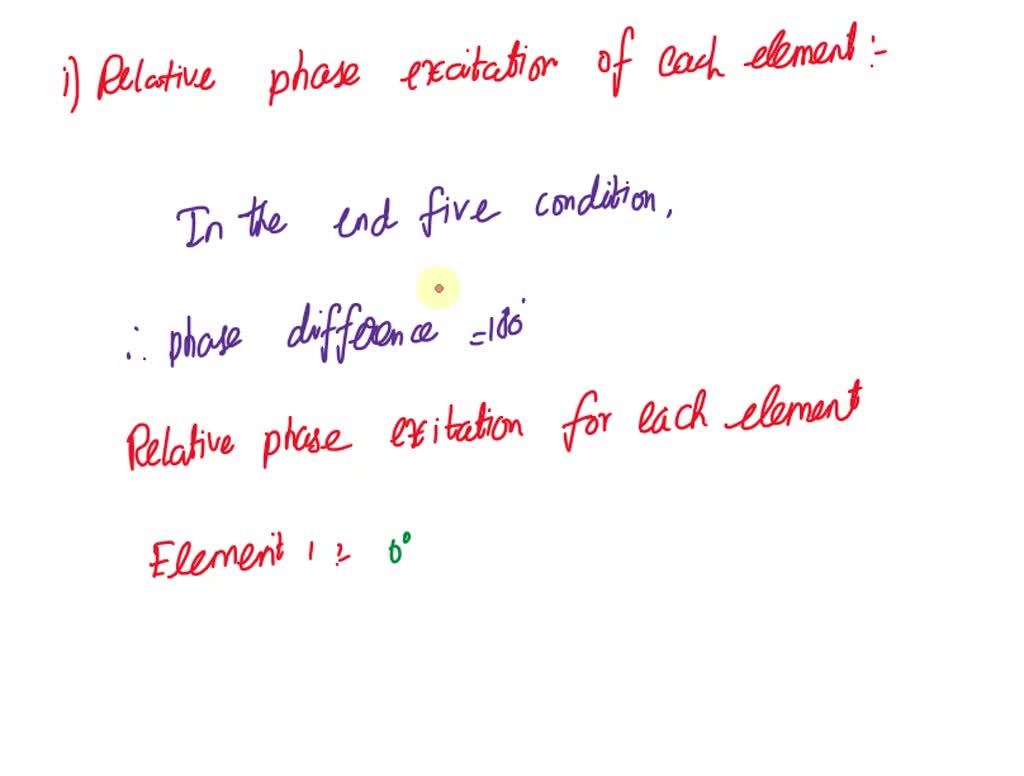 i) Relative phase excitation of each element :-
In the end five condition,
∴ phase difference = 180°
Relative phase exitation for each element
Element 1 = 0°